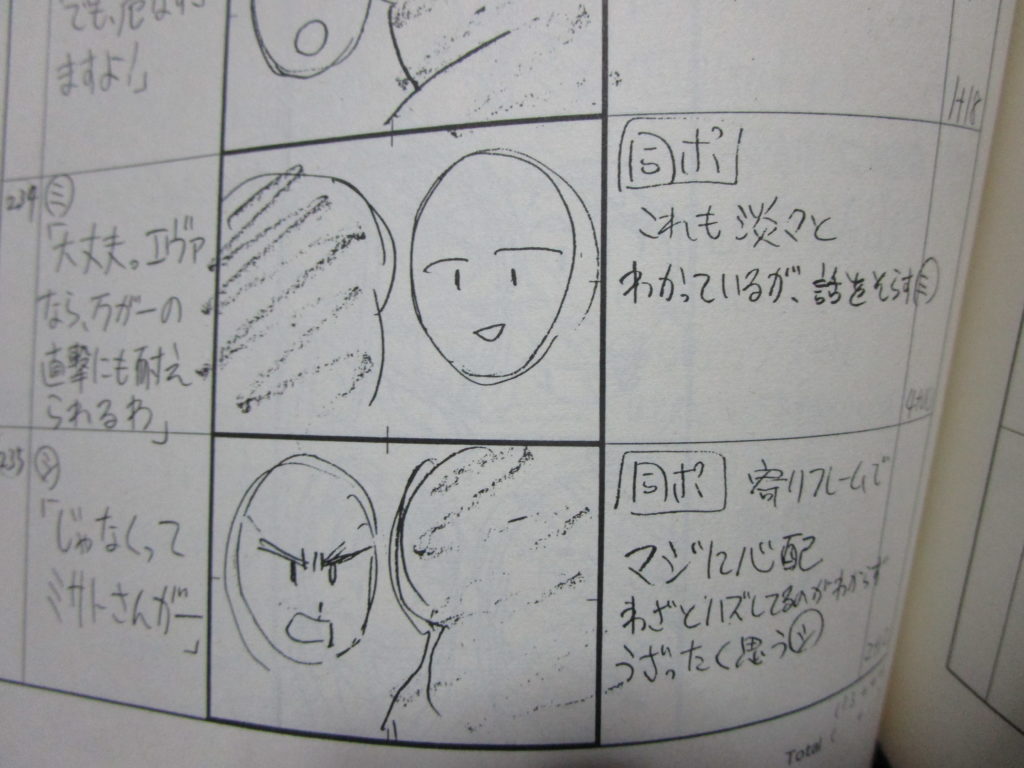 でも、危な
ますよ!」
1+18
234
ミ
「大丈夫。エヴァ
なら、万が一の
直撃にも耐え
られるわ」
同ポ
これも淡々と
わかっているが、話をそらすミ
235
シ
「じゃなくって
ミサトさんが—」
同ポ 寄りフレームで
マジに心配
わざとハズしてるのがわからず
うざったく思うシ
Total